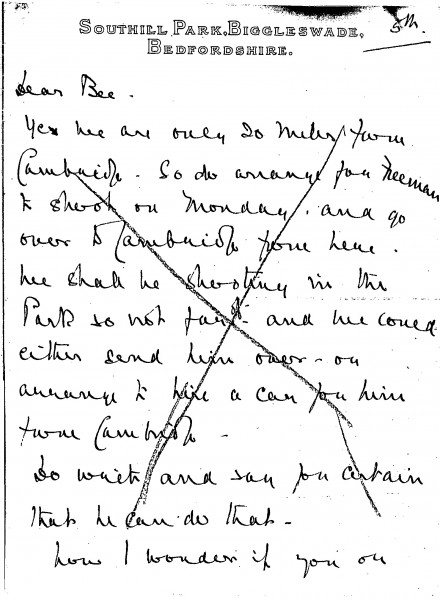 SOUTHILL PARK, BIGGLESWADE,
BEDFORDSHIRE.
5th.
Dear Bee.
Yes we are only 20 miles from
Cambridge. So do arrange for Freeman
to shoot on Monday. and go
over to Cambridge from here.
We shall be shooting in the
Park so not far and we could
either send him over - or
arrange to hire a car for him
from Cambridge -
Do write and say for certain
that he can do that -
how I wonder if you or